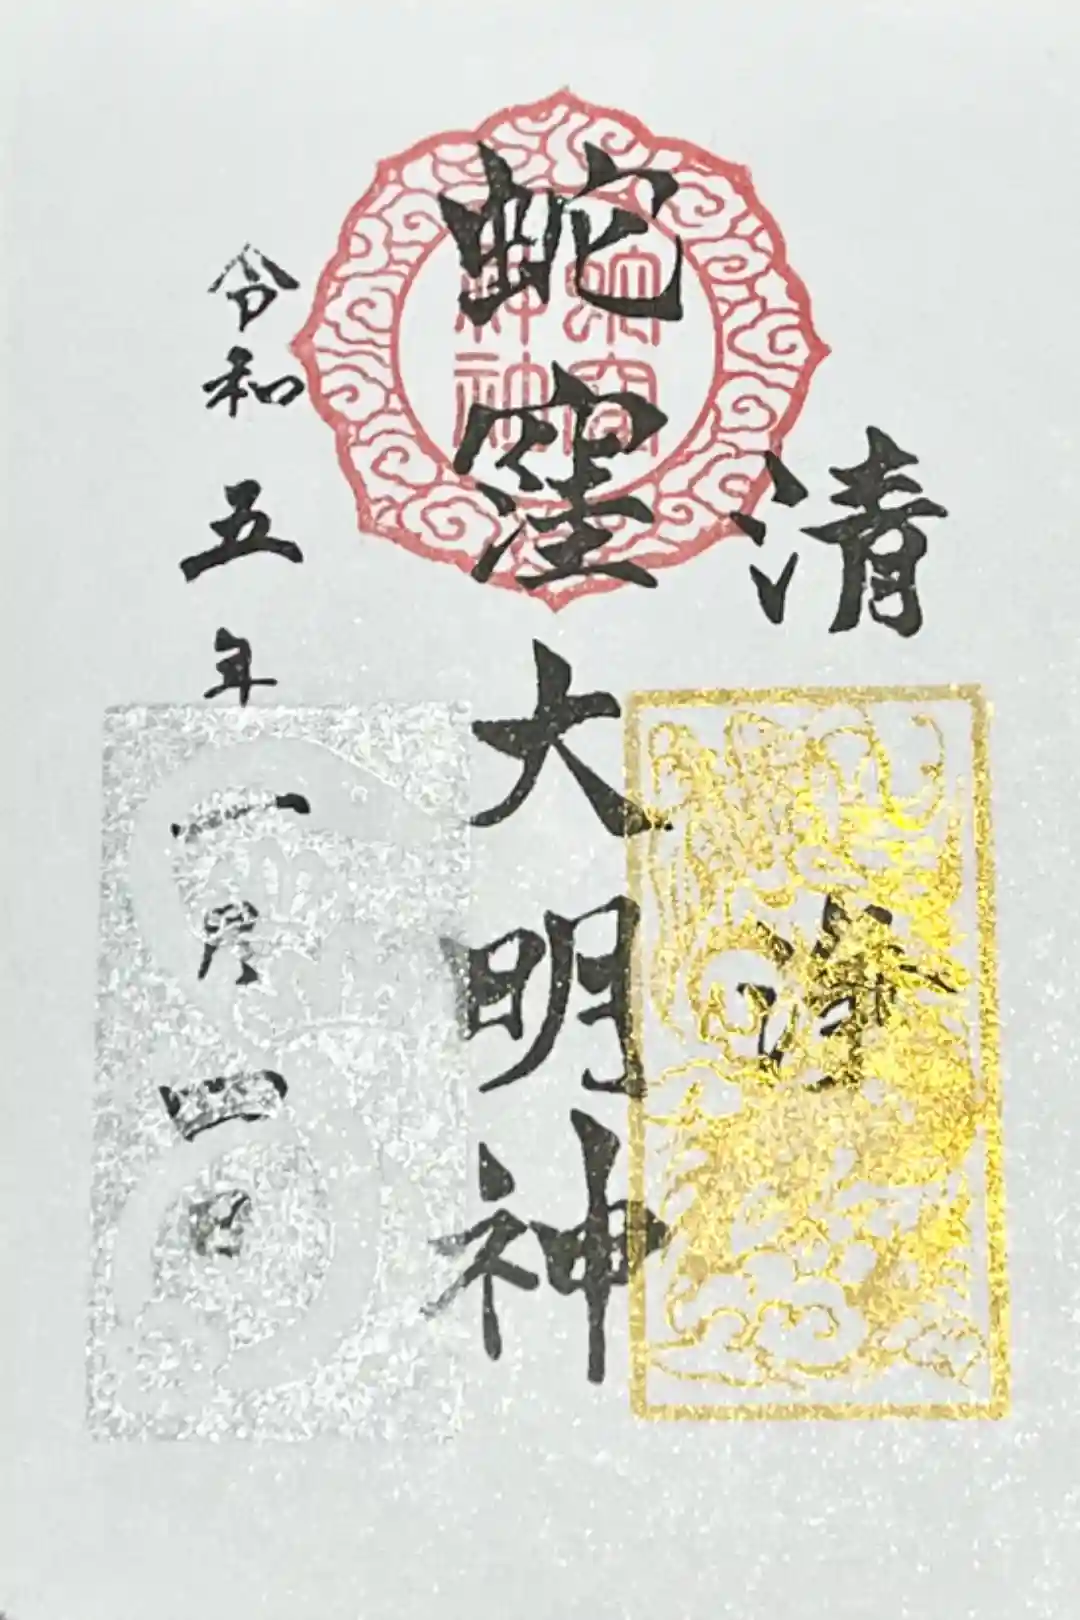 清浄
蛇窪大明神
蛇窪
神社
令和五年一月四日